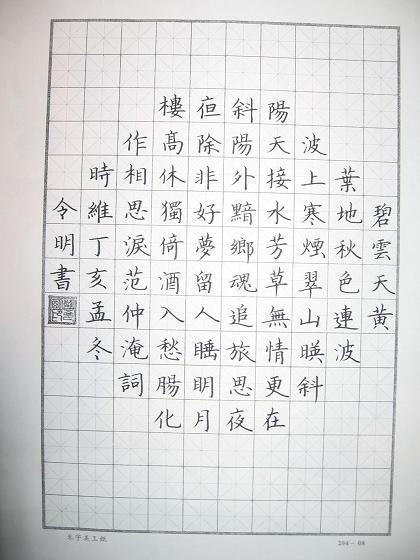 碧雲天黃
葉地秋色連波
波上寒煙翠山暎斜
陽天接水芳草無情更在
斜陽外黯鄉魂追旅思夜
亱除非好夢留人睡眀月
樓髙休獨倚酒入愁腸化
作相思淚范仲淹詞
時維丁亥孟冬
令明書
米字美工紙
204-08